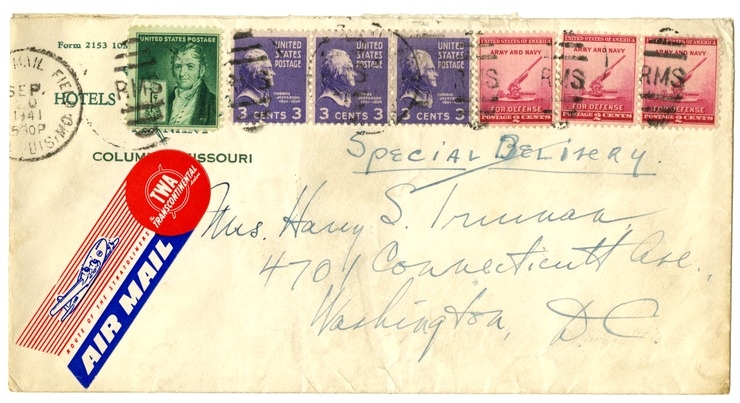 Form 2153
UNITED STATES POSTAGE
UNITED STATES POSTAGE
UNITED STATES POSTAGE
UNITED STATES POSTAGE
UNITED STATES OF AMERICA
UNITED STATES OF AMERICA
UNITED STATES OF AMERICA
ARMY AND NAVY
ARMY AND NAVY
ARMY AND NAVY
MAIL FIE
SEP.
20
1941
530P
UIS, MO.
HOTELS
RMS
RMS
RMS
THOMAS JEFFERSON
THOMAS JEFFERSON
THOMAS JEFFERSON
3 CENTS 3
3 CENTS 3
3 CENTS 3
FOR DEFENSE
FOR DEFENSE
FOR DEFENSE
POSTAGE 2 CENTS
POSTAGE 2 CENTS
POSTAGE 2 CENTS
COLUM ISSOURI
Special Delivery.
The
TWA
TRANSCONTINENTAL
Line
ROUTE OF THE STRATOLINERS
AIR MAIL
Mrs. Harry S. Truman,
4701 Connecticutt Ave.,
Washington, D.C.